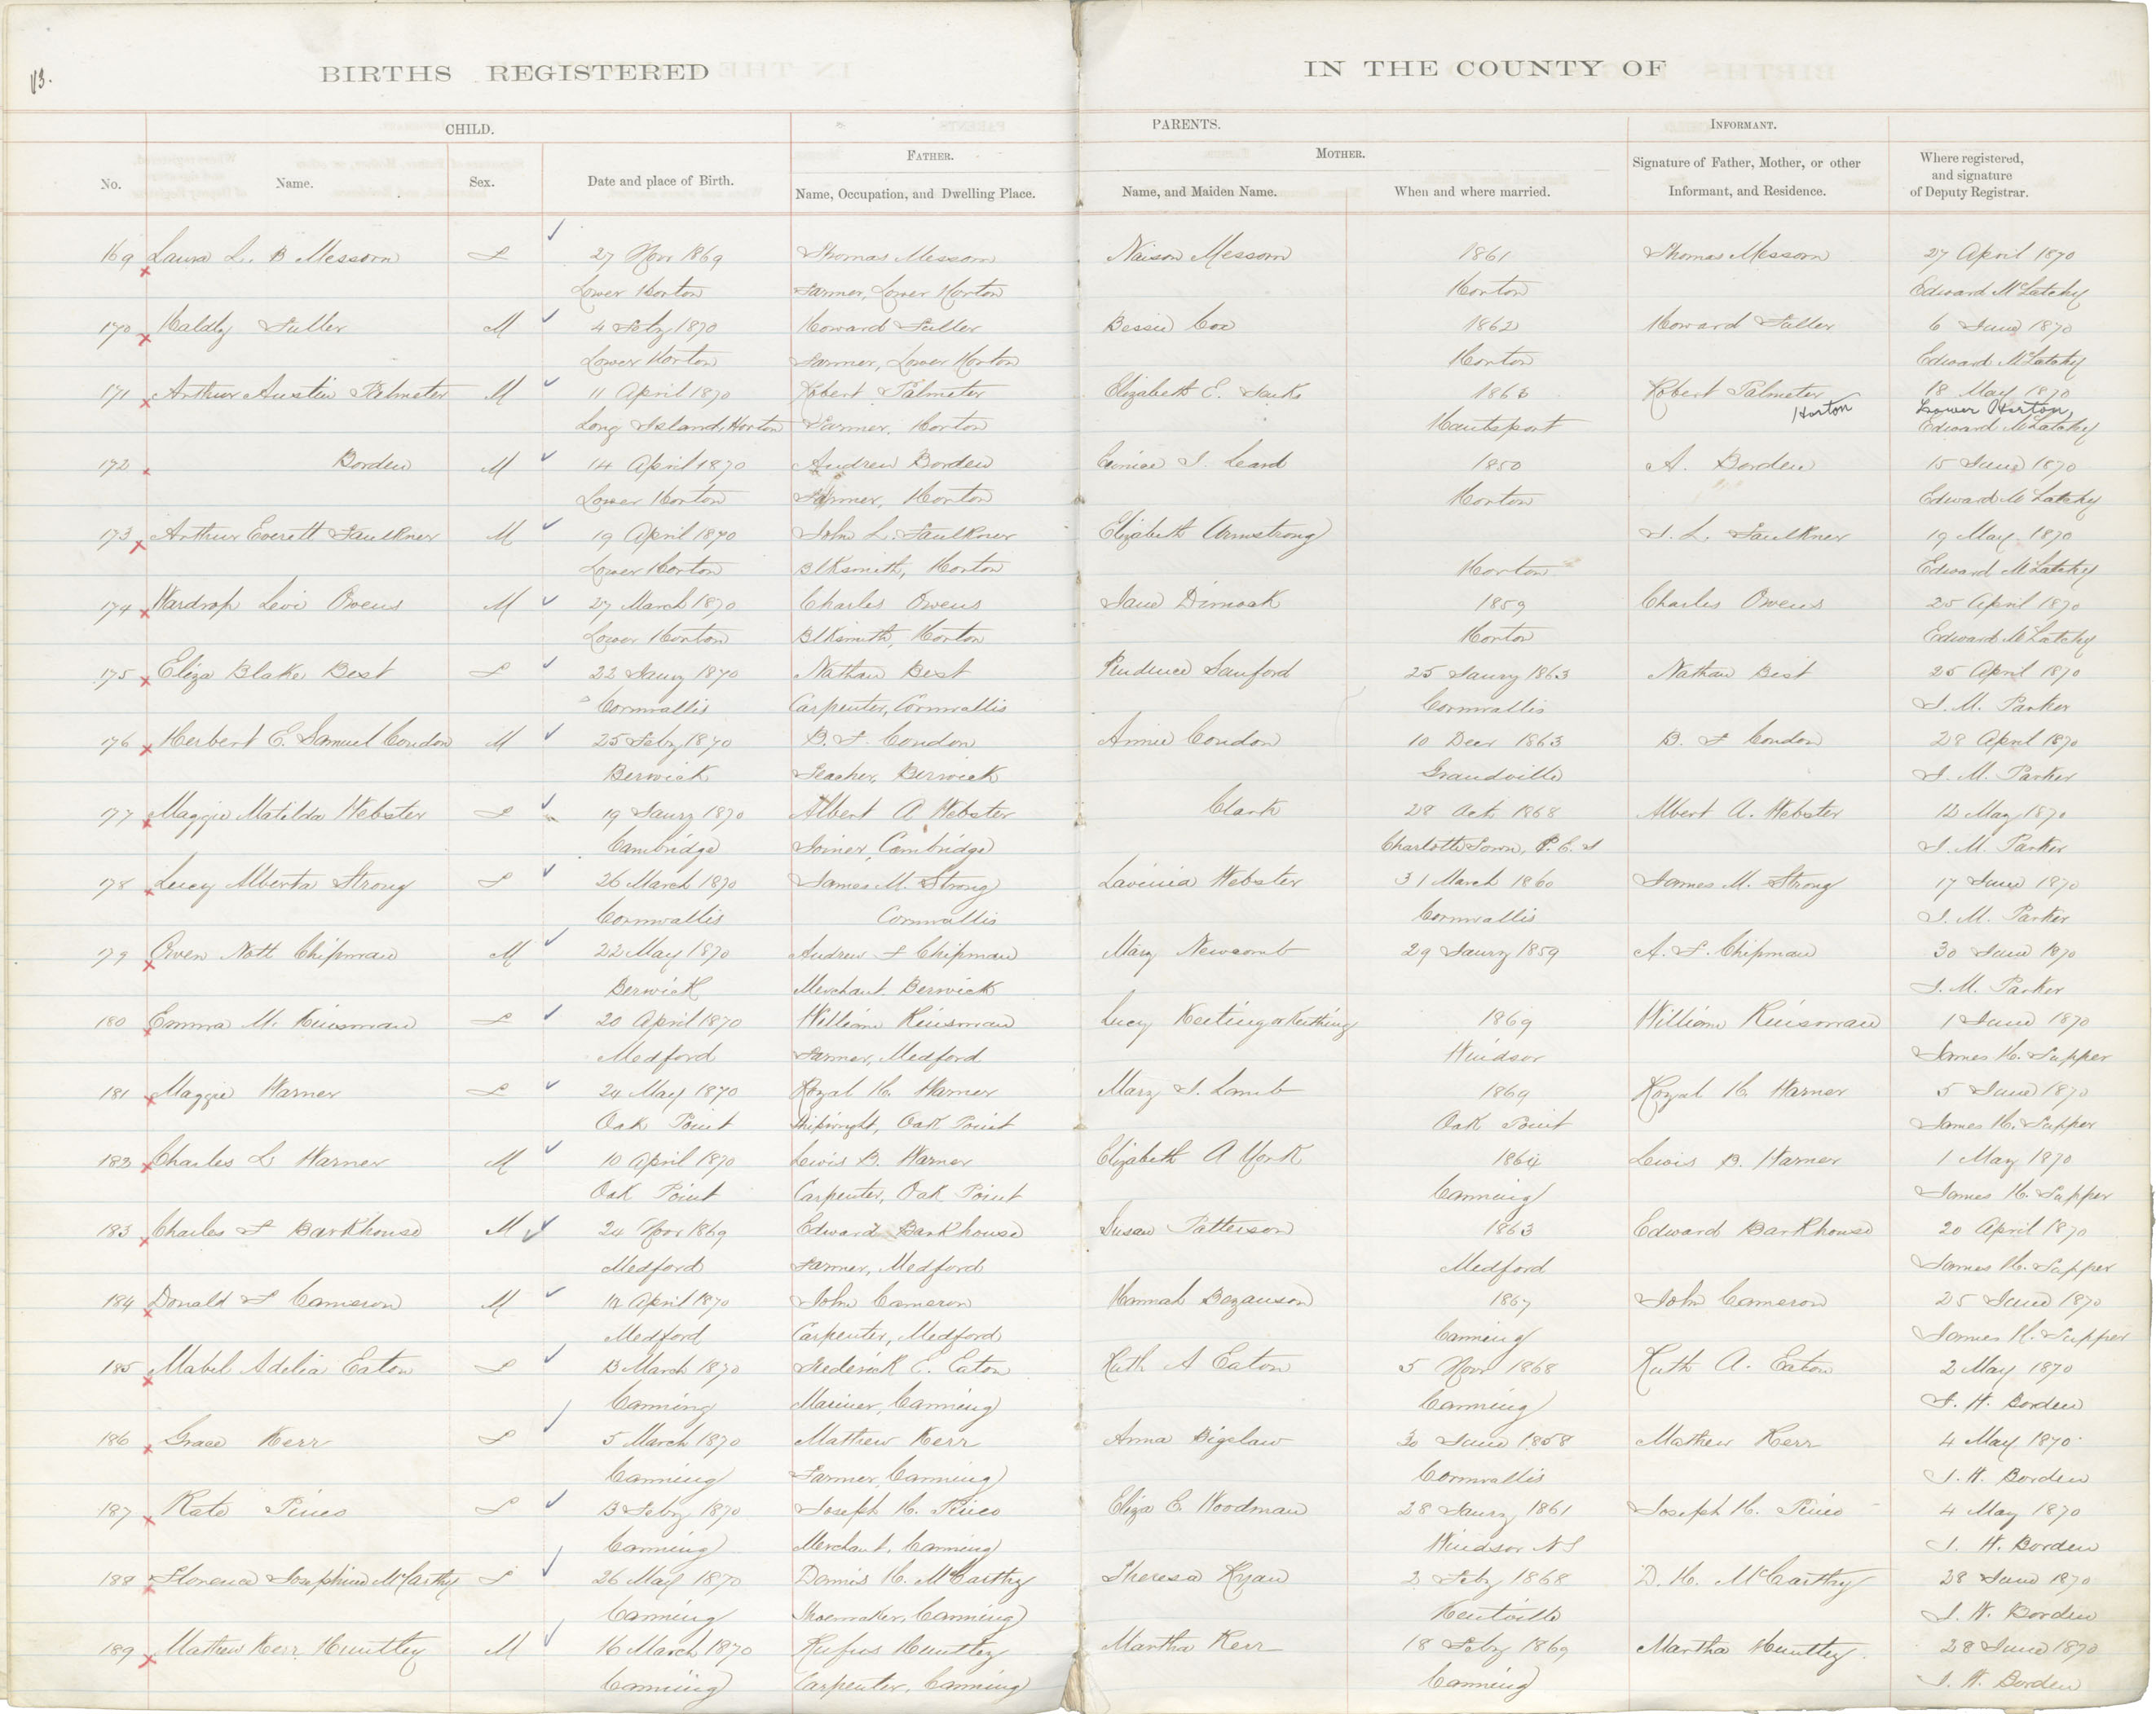 13.
BIRTHS REGISTERED IN THE COUNTY OF
CHILD. PARENTS. INFORMANT.
FATHER. MOTHER.
No. Name. Sex. Date and place of Birth. Name, Occupation, and Dwelling Place. Name, and Maiden Name. When and where married. Signature of Father, Mother, or other Informant, and Residence. Where registered, and signature of Deputy Registrar.
169 Laura L. B Messom F 27 Novr 1869 Thomas Messom Messom 1861 Thomas Messom 27 April 1870
Lower Horton Farmer, Lower Horton Horton Edward McLatchy
170 Haldly Fuller M 4 Feby 1870 Howard Fuller Bessie Cox 1862 Howard Fuller 6 June 1870
Lower Horton Farmer, Lower Horton Horton Edward McLatchy
171 Arthur Austin Palmeter M 11 April 1870 Robert Palmeter Elizabeth E. 1863 Robert Palmeter 18 May 1870
Horton Lower Horton,
Long Island, Horton Farmer. Horton Hantsport Edward McLatchy
172 Borden M 14 April 1870 Andrew Borden Eunice I. Leard 1850 A. Borden 15 June 1870
Lower Horton Farmer, Horton Horton Edward McLatchy
173 Arthur Everett Faulkner M 19 April 1870 John L. Faulkner Elizabeth Armstrong J. L. Faulkner 19 May 1870
Lower Horton Blksmith, Horton Horton Edward McLatchy
174 Wardrop Levi Owens M 27 March 1870 Charles Owens Jane Dimock 1859 Charles Owens 25 April 1870
Lower Horton Blksmith, Horton Horton Edward McLatchy
175 Eliza Blake Best F 22 Jany 1870 Nathan Best Prudence Sanford 25 Jany 1863 Nathan Best 25 April 1870
Cornwallis Carpenter, Cornwallis Cornwallis J. M. Parker
176 Herbert C. Samuel Condon M 25 Feby 1870 B. F. Condon Annie Condon 10 Decr 1863 B. F Condon 28 April 1870
Berwick Teacher, Berwick Grandville J. M. Parker
177 Maggie Matilda Webster F 19 Jany 1870 Albert A Webster Clark 28 Oct 1868 Albert A. Webster 12 May 1870
Cambridge Joiner, Cambridge Charlotte Town, P. E. I J. M. Parker
178 Lucy Alberta Strong F 26 March 1870 James M. Strong Lavinia Webster 31 March 1860 James M. Strong 17 June 1870
Cornwallis Cornwallis Cornwallis J. M. Parker
179 Owen Nott Chipman M 22 May 1870 Andrew F Chipman Mary Newcomb 29 Jany 1859 A. F. Chipman 30 June 1870
Berwick Merchant. Berwick J. M. Parker
180 Emma M. Kinsman F 20 April 1870 William Kinsman Lucy Keating or Keithing 1869 William Kinsman 1 June 1870
Medford Farmer, Medford Windsor James H. Tupper
181 Maggie Warner F 24 May 1870 Royal H. Warner Mary J. Lamb 1869 Royal H Warner 5 June 1870
Oak Point Shipwright, Oak Point Oak Point James H. Tupper
182 Charles L Warner M 10 April 1870 Lewis B. Warner Elizabeth A York 1864 Lewis B. Warner 1 May 1870
Oak Point Carpenter, Oak Point Canning James H. Tupper
183 Charles F Barkhouse M 24 Novr 1869 Edward Barkhouse Susan Patterson 1863 Edward Barkhouse 20 April 1870
Medford Farmer, Medford Medford James H. Tupper
184 Donald F Cameron M 12 April 1870 John Cameron Hannah Bezanson 1867 John Cameron 25 June 1870
Medford Carpenter, Medford Canning James H. Tupper
185 Mabel Adelia Eaton F 13 March 1870 Frederick E. Eaton Ruth A Eaton 5 Novr 1868 Ruth A. Eaton 2 May 1870
Canning Mariner, Canning Canning J. W. Borden
186 Grace Kerr F 5 March 1870 Mathew Kerr Anna Bigelaw 30 June 1858 Mathew Kerr 4 May 1870
Canning Farmer, Canning Cornwallis J. W. Borden
187 Kate Pineo F 13 Feby 1870 Joseph H. Pineo Eliza E Woodman 28 Jany 1861 Joseph H. Pineo 4 May 1870
Canning Merchant, Canning Windsor NS J. W. Borden
188 Florence Josephine McCarthy F 26 May 1870 Dennis H. McCarthy Theresa Ryan 2 Feby 1868 D. H. McCarthy 28 June 1870
Canning Shoemaker, Canning Kentville J. W. Borden
189 Mathew Kerr Huntley M 16 March 1870 Rufus Huntley Martha Kerr 18 Feby 1869 Martha Huntley 28 June 1870
Canning Carpenter, Canning Canning J. W. Borden